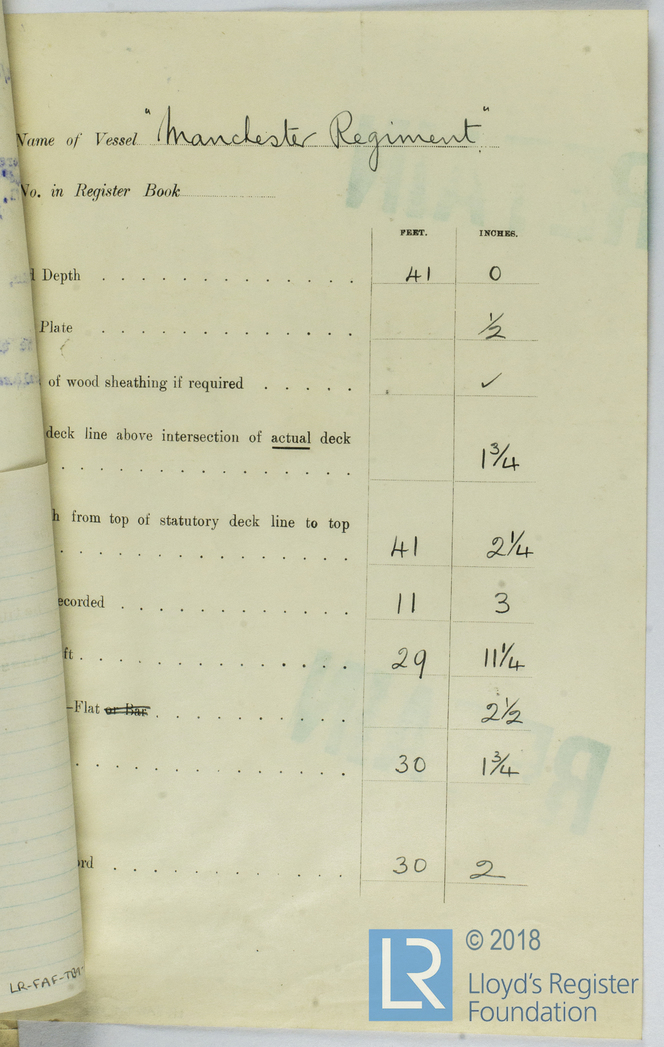 Name of Vessel "Manchester Regiment"
No. in Register Book
FEET. INCHES.
Depth 41 0
Plate 1/2
of wood sheathing if required ✓
deck line above intersection of actual deck
1 3/4
from top of statutory deck line to top
41 2 1/4
ecorded 11 3
ft 29 11 1/4
-Flat or Bar 2 1/2
30 1 3/4
rd 30 2
LR-FAF-
LR
© 2018
Lloyd's Register
Foundation